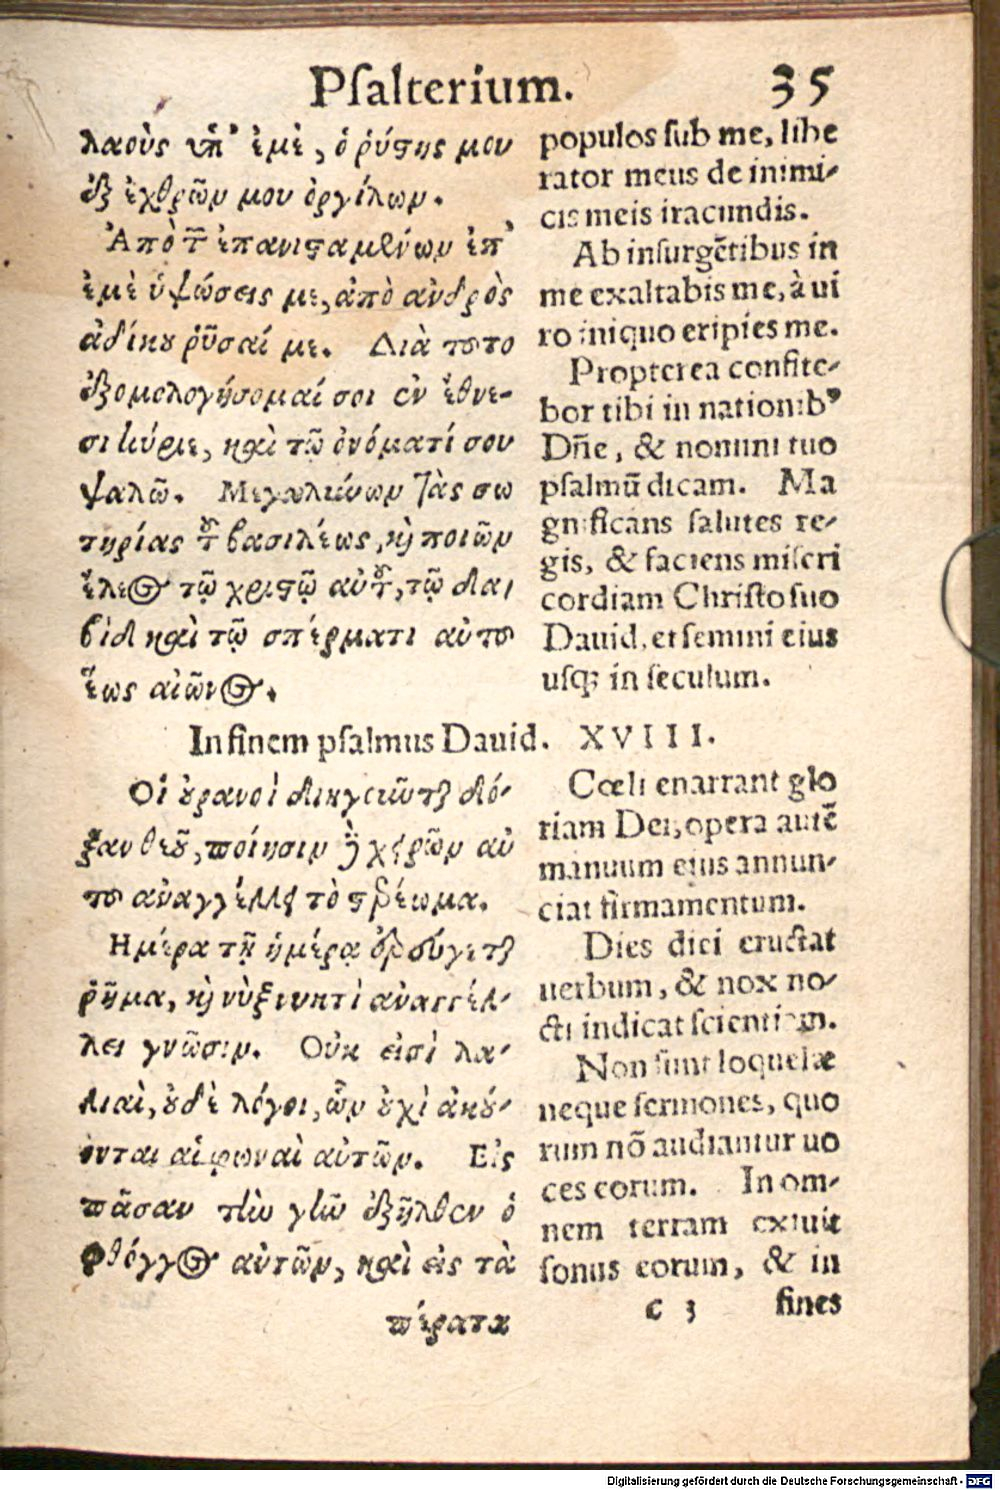 Psalterium. 35
λαοὺς ὑπ' ἐμὲ, ὁ ῥύστης μου
ἐξ ἐχθρῶν μου ὀργίλων.
Ἀπὸ τῶν ἐπανισταμένων ἐπ'
ἐμὲ ὑψώσεις με, ἀπὸ ἀνδρὸς
ἀδίκου ῥῦσαί με. Διὰ τοῦτο
ἐξομολογήσομαί σοι ἐν ἔθνε-
σι κύριε, καὶ τῷ ὀνόματί σου
ψαλῶ. Μεγαλύνων τὰς σω
τηρίας τοῦ βασιλέως, καὶ ποιῶν
ἔλεος τῷ χριστῷ αὐτοῦ, τῷ δα,
βὶδ καὶ τῷ σπέρματι αὐτοῦ
ἕως αἰῶνος.
populos sub me, libe
rator meus de inimi-
cis meis iracundis.
Ab insurgẽtibus in
me exaltabis me, à ui
ro iniquo eripies me.
Propterea confite-
bor tibi in nationibꝰ
Dñe, & nomini tuo
psalmũ dicam. Ma
gnificans salutes re-
gis, & faciens miseri
cordiam Christo suo
Dauid, et semini eius
usq; in seculum.
In finem psalmus Dauid. XVIII.
Οἱ οὐρανοὶ διηγοῦνται δό-
ξαν θεοῦ, ποίησιν δὲ χειρῶν αὐ
τοῦ ἀναγγέλλει τὸ στερέωμα.
Ημέρα τῇ ἡμέρᾳ ἐρεύγεται
ῥῆμα, καὶ νὺξ νυκτὶ ἀναγγέλ-
λει γνῶσιν. Οὐκ εἰσὶ λα-
λιαὶ, οὐδὲ λόγοι, ὧν οὐχὶ ἀκού-
ονται αἱ φωναὶ αὐτῶν. Εἰς
πᾶσαν τὴν γῆν ἐξῆλθεν ὁ
φθόγγος αὐτῶν, καὶ εἰς τὰ
πέρατα
Cœli enarrant glo
riam Dei, opera autẽ
manuum eius annun-
ciat firmamentum.
Dies diei eructat
uerbum, & nox no-
cti indicat scientiam.
Non sunt loquelæ
neque sermones, quo
rum nõ audiantur uo
ces eorum. In om-
nem terram exiuit
sonus eorum, & in
c 3 fines
Digitalisierung gefördert durch die Deutsche Forschungsgemeinschaft - DFG